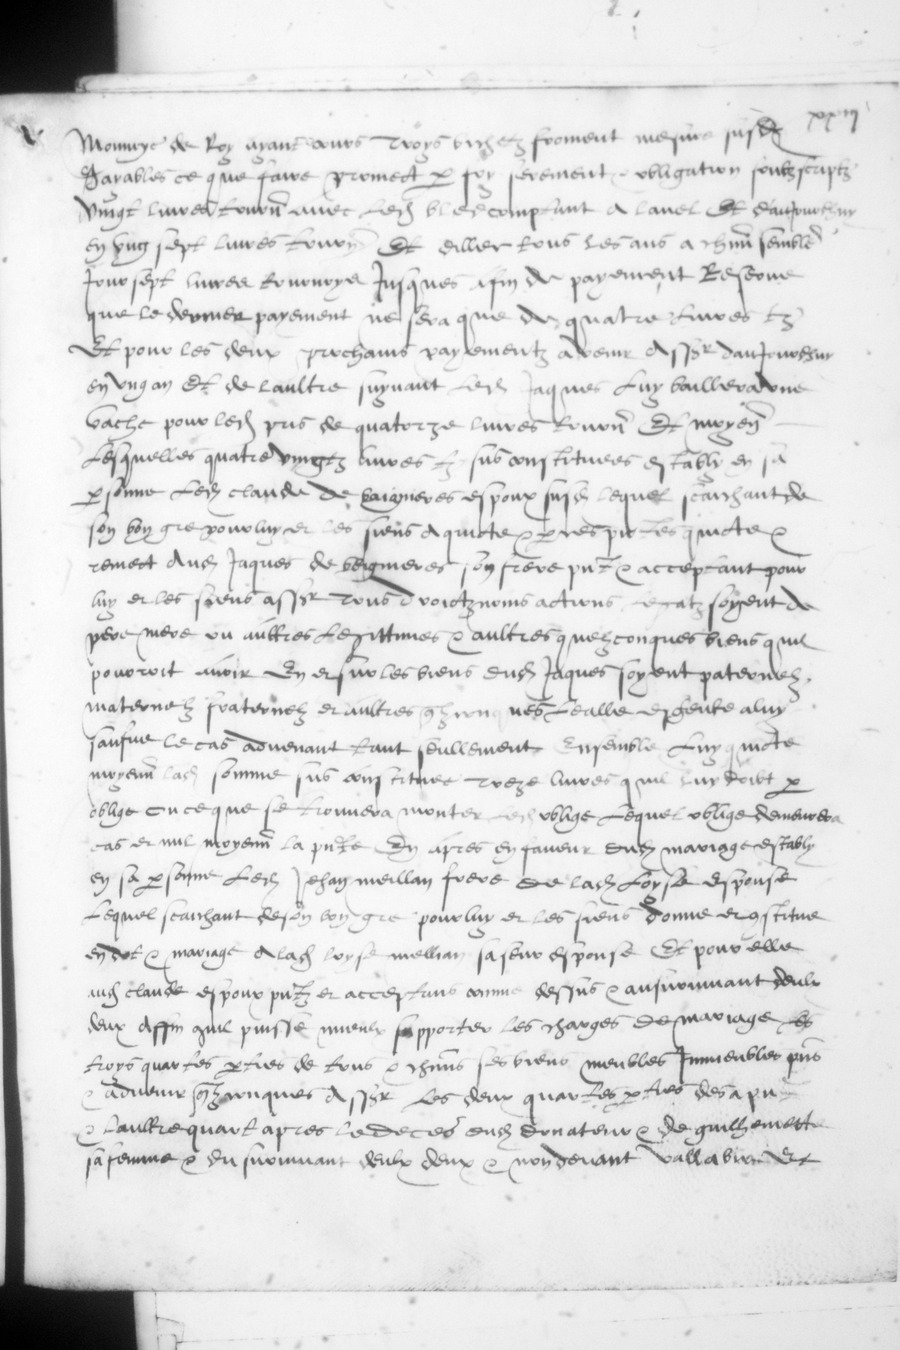 xxiii
Monnoye de Roy ayant cours Troys bichetz froment mesure susd
Payables ce que faire promect p foy serement & obligation soubzscriptz
Vingt livres tourn avec led bled comptant A lavel Et daujourdhuy
en ung sept livres tourn Et dillec tous les ans a chm semble
Jour sept livres tournoys Jusques afin de payement Reserve
que le dernier payement ne sera que de quatre livres tz
Et pour les deux prochains payementz advenir Assr daujourdhuy
en ung an Et de laultre suyvant led Jaques luy baillera une
vache pour led pris de quatorze livres tourn Et moyen
Lesquelles quatre vingtz livres tz sus constituees establly en sa
psonne led claude de baigneres espoux susd lequel scaichant de
son bon gre pour luy et les siens A quicte & p ces pntes quicte &
remect Aud Jaques de beigneres son frere pnt & acceptant pour
luy et les siens assr Tous droictz noms actions soyent de
pere mere ou aultres legittimes & aultres quelzconques biens quil
pourroit avoir En et sur les biens dud Jaques soyent paternelz
maternelz fraternelz et aultres qlzconques Lealle escheute a luy
saulfve le cas advenant tant seullement Ensemble Luy quicte
moyenn lad somme sus constituee Treze livres quil luy doibt p
oblige en ce que se trouvera monter led oblige Lequel oblige demeurera
cas et nul moyenn la pnte En apres en faveur dud mariage establly
en sa psonne led Jehan meillan frere de lad Loyse espouse
Lequel scaichant de son bon gre pour luy et les siens donne et qstitue
en dot & mariage A lad loyse mellian sa seur espouse Et pour elle
aud claude espoux pntz et acceptans comme dessus & au survivant deulx
deux Affin quil puisse mieulx supporter les charges de mariage les
troys quartes pties de tous & chms ses biens meubles Immeubles pns
& advenir qlzconques Assr Les deux quartes pties des a pnt
& laultre quart apres le deces dud donateur & de guilhemette
sa femme & du survivant deulx deux & non devant Vallable Et